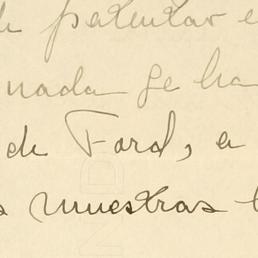 de patentar e
nada se ha
de Ford, a
s muestras t